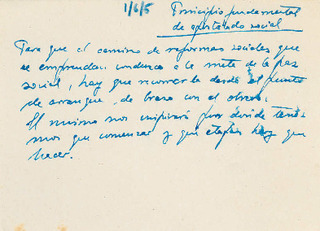 1/6/5
Principio fundamental
de apostolado social
Para que el camino de reformas sociales que
se emprendan conduzca a la meta de la paz
social, hay que recorrerla desde el punto
de arranque, de brazo con el obrero.
El mismo nos inspirará por donde tene-
mos que comenzar y que etapas hay que
hacer.